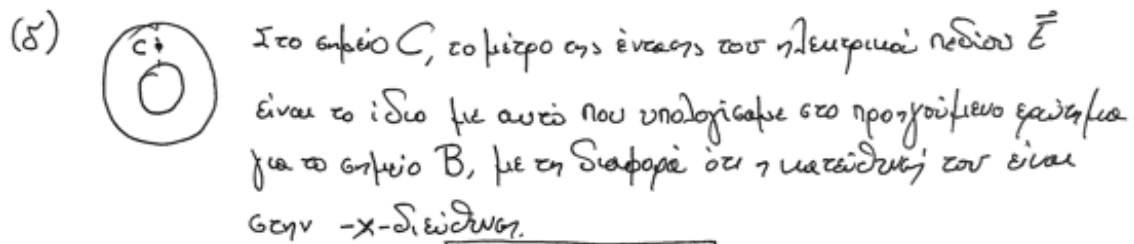 (δ) C Στο σημείο C, το μέτρο της έντασης του ηλεκτρικού πεδίου E⃗
είναι το ίδιο με αυτό που υπολογίσαμε στο προηγούμενο ερώτημα
για το σημείο B, με τη διαφορά ότι η κατεύθυνσή του είναι
στην -x-διεύθυνση.